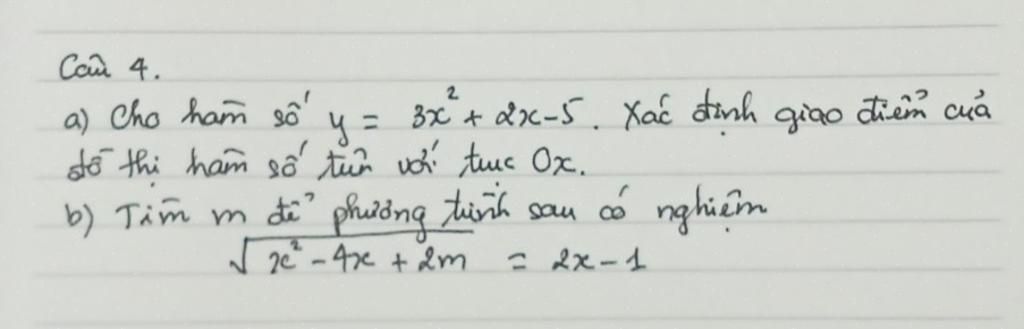 Câu 4.
a) Cho hàm số y = 3x² + 2x - 5. Xác định giao điểm của
đồ thị hàm số trên với trục Ox.
b) Tìm m để phương trình sau có nghiệm
√(x² - 4x + 2m) = 2x - 1